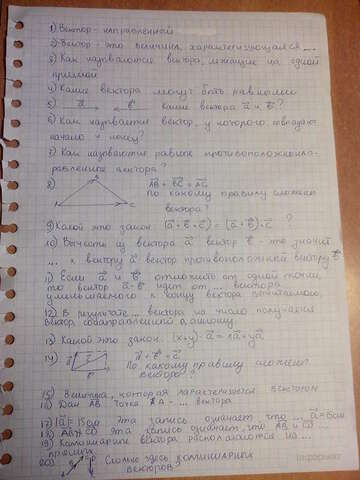 1) Вектор - направленный
2) Вектор - это величина, характеризующаяся ...
3) Как называются вектора, лежащие на одной
прямой
4) Какие вектора могут быть равными
5) a b Какие вектора a и b?
6) Как называется вектор, у которого совпадают
начало и конец?
7) Как называются равные противоположнона-
равленные вектора?
8) AB + BC = AC
По какому правилу сложены
вектора?
A C
9) Какой это закон (a + b + c) = (a + b) + c ?
10) Вычесть из вектора a вектор b - это значит
... к вектору a вектор противоположный вектору b
11) Если a и b отложить от одной точки,
то вектор a - b идет от ... вектора
уменьшаемого к концу вектора вычитаемого.
12) В результате ... вектора на число получается
вектор
13) Какой это закон. (x+y)·a = xa + ya
14) a + b = c
По какому правилу сложены
вектора?
15) Величина, которая характеризуется вектором
16) Дан AB точка A - ... вектора
17) |a| = 15 см эта запись означает что ... a = 15 см
18) эта запись означает, что AB и CD
19) Коллинеарные вектора располагаются на ...
прямых
20) Сколько здесь коллинеарных
векторов?